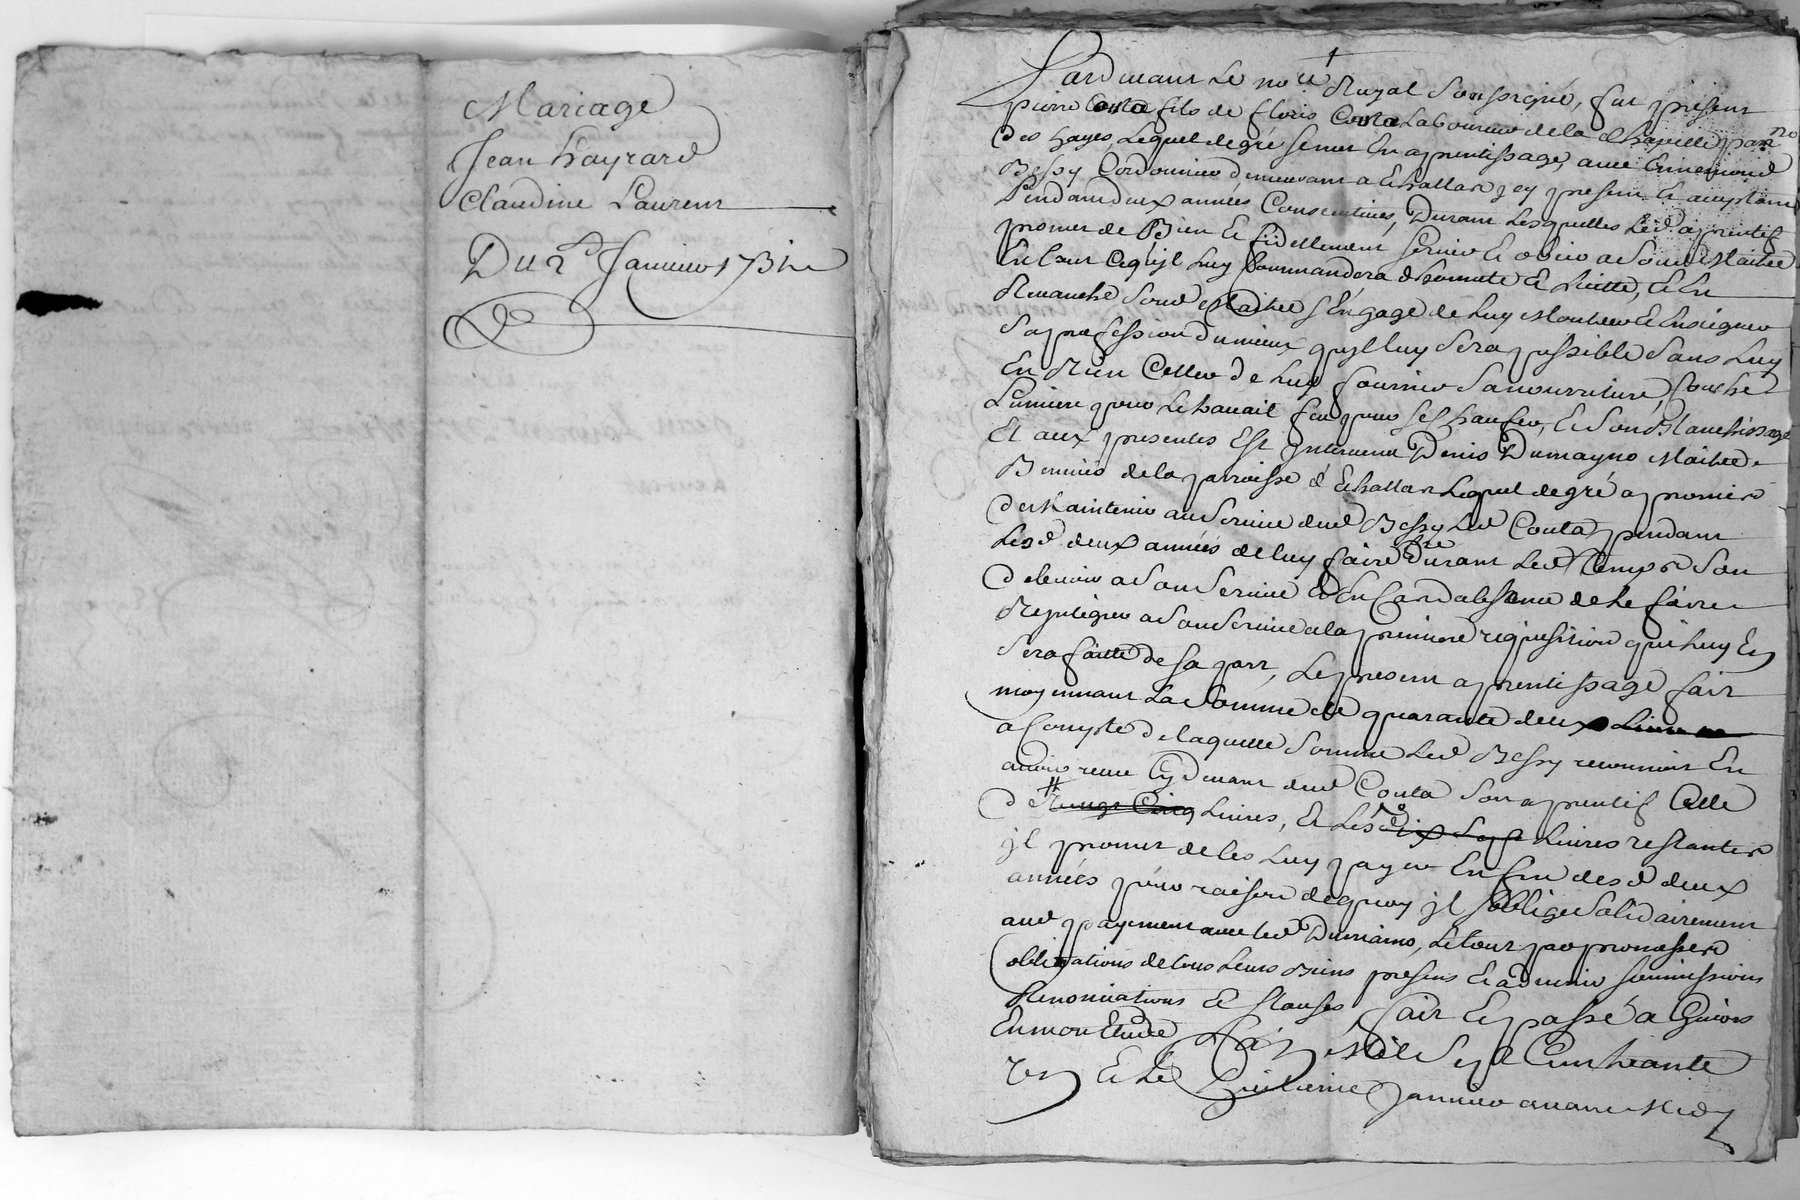 Mariage
Jean hayrard
Claudine Laurens
Du 2e Janvier
Pardevant le nore Royal soussigné, fut present
pierre Couta fils de floris Couta Laboureur de la Chapelle
des hayes, Lequel de gré se met En aprentissage, avec Ennemond
Bessy Cordonnier demeurant a Echallas jcy present Et acceptant
Pendant deux années Consecutives, Durant Lesquelles Led aprentif
promet de Bien Et fidellement servir Et obeir a Sond Maitre
En tout Ce qu'jl Luy Commandera d'honnete Et Licitte, Et En
Revanche Sond Maitre s'Engage de Luy Montrer Et Enseigner
Sa profession du mieux qu'jl luy Sera possible Sans Luy
En Rien Celler de Luy fournir Sa nourriture, Couche
Lumiere pour Le travail feu pour se Chaufer, Et Son Blanchissage
Et aux presentes Est Intervenu Denis Dumayno Maitre
de la parroisse d'Echallas Lequel de gré a promis
de Maintenir au Service dud Bessy Led Couta pendant
Lesd deux années de luy faire durant Led Temps Son
debvoir a Son Service Et En Cas d'absence de Le faire
a Son Service a la premiere requisition qui Luy En
Sera faitte de Sa part, Le present aprentissage fait
moyennant La Somme de quarante deux Livres
a Compte de laquelle Somme Led Bessy reconnoit En
avoir receu Cy devant dud Couta Son aprentif Celle
de Vingt Cinq Livres, Et Les dix Sept Livres restantes
jl promet de les Luy payer En fin desd deux
années pour raison de quoy jl s'obligé Solidairement
aud payement avec led Dumaino, Le tout par promesses
obligations de tous Leurs Biens presens Et a venir soumissions
Renonciations Et Clauses fait Et passé a Givors
En mon Etude L'an Mil Sept Cent trente
Et Le Huitieme Janvier avant Midy